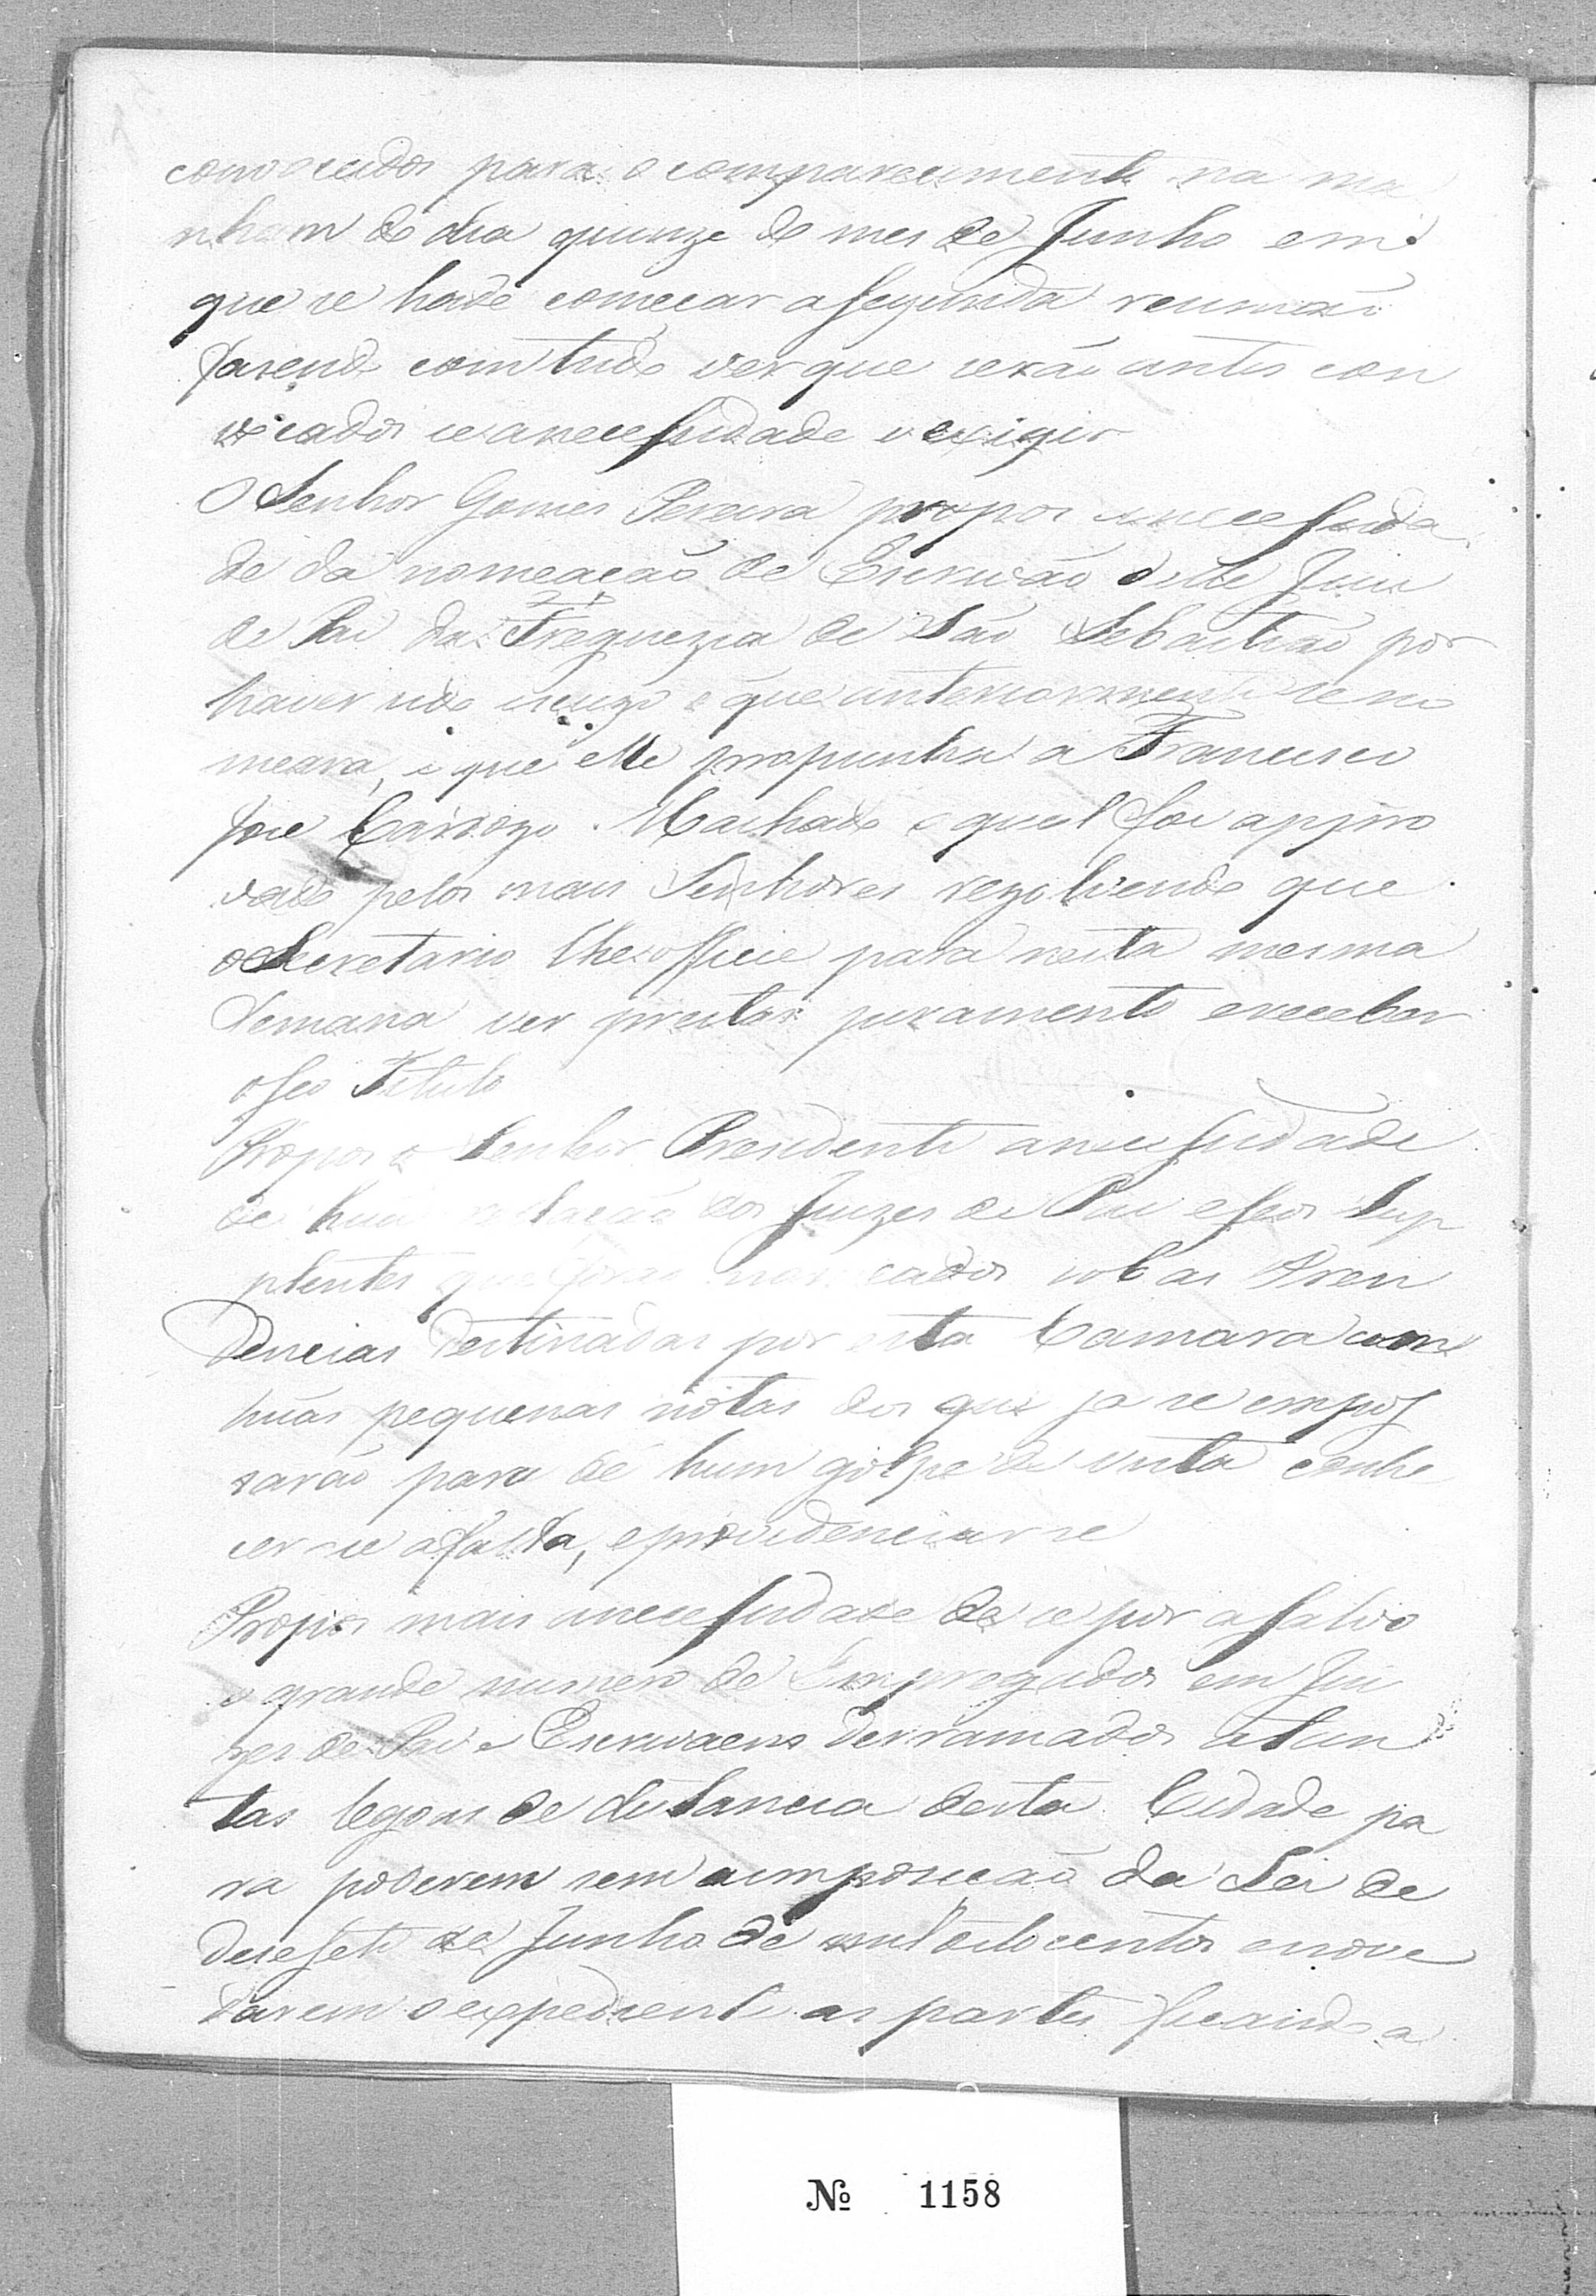 convocados para o comparecimento na ma
nham do dia quinze do mes de Junho em
que se hade comecar a segunda reuniaõ
fasendo comtudo ver que seraõ antes con
vocados se a necessidade o exigir
O Senhor Gomes Pereira propos a necessida
de da nomeaçaõ de Escrivaõ deste Juiz
de Paz da Freguezia de Saõ Sebastiaõ por
haver sido escuzo o que anteriormente se no
meara, e que elle propunha a Francisco
Jose Cardozo Machado o qual foi appro
vado pelos mais Senhores rezolvendo que
o Secretario lhe officie para nesta mesma
Semana vir prestar juramento e receber
o seo Titulo
Propos o Senhor Presidente a necessidade
de huma relaçaõ dos Juizes de Paz e seos Sup
plentes que foraõ marcados sob as Prezi
dencias destinadas por esta Camara com
huãs pequenas notas dos que ja se empos
saraõ para de hum golpe de vista conhe
cer-se a falta, e providenciar-se
Propos mais a necessidade de se por a salvo
o grande numero de Empregados em Jui
zes de Paz e Escrivaens derramados a tan
tas legoas de distancia desta Cidade pa
ra poderem sem a imposicaõ da Lei de
desesete de Junho de mil oitocentos e nove
darem o expediente as partes ficando a
Nº 1158